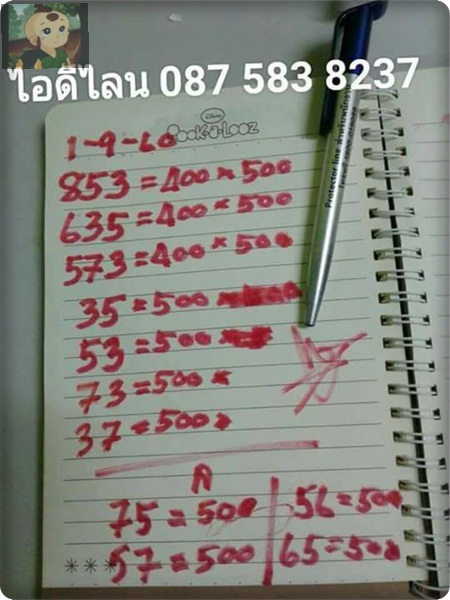 ไอดีไลน 087 583 8237
Disney
Pook-a-Looz
1-9-60
853=400×500
635=400×500
573=400×500
35=500
53=500
73=500×
37=500×
A
75=500
56=500
***57=500
65=500
Protector line